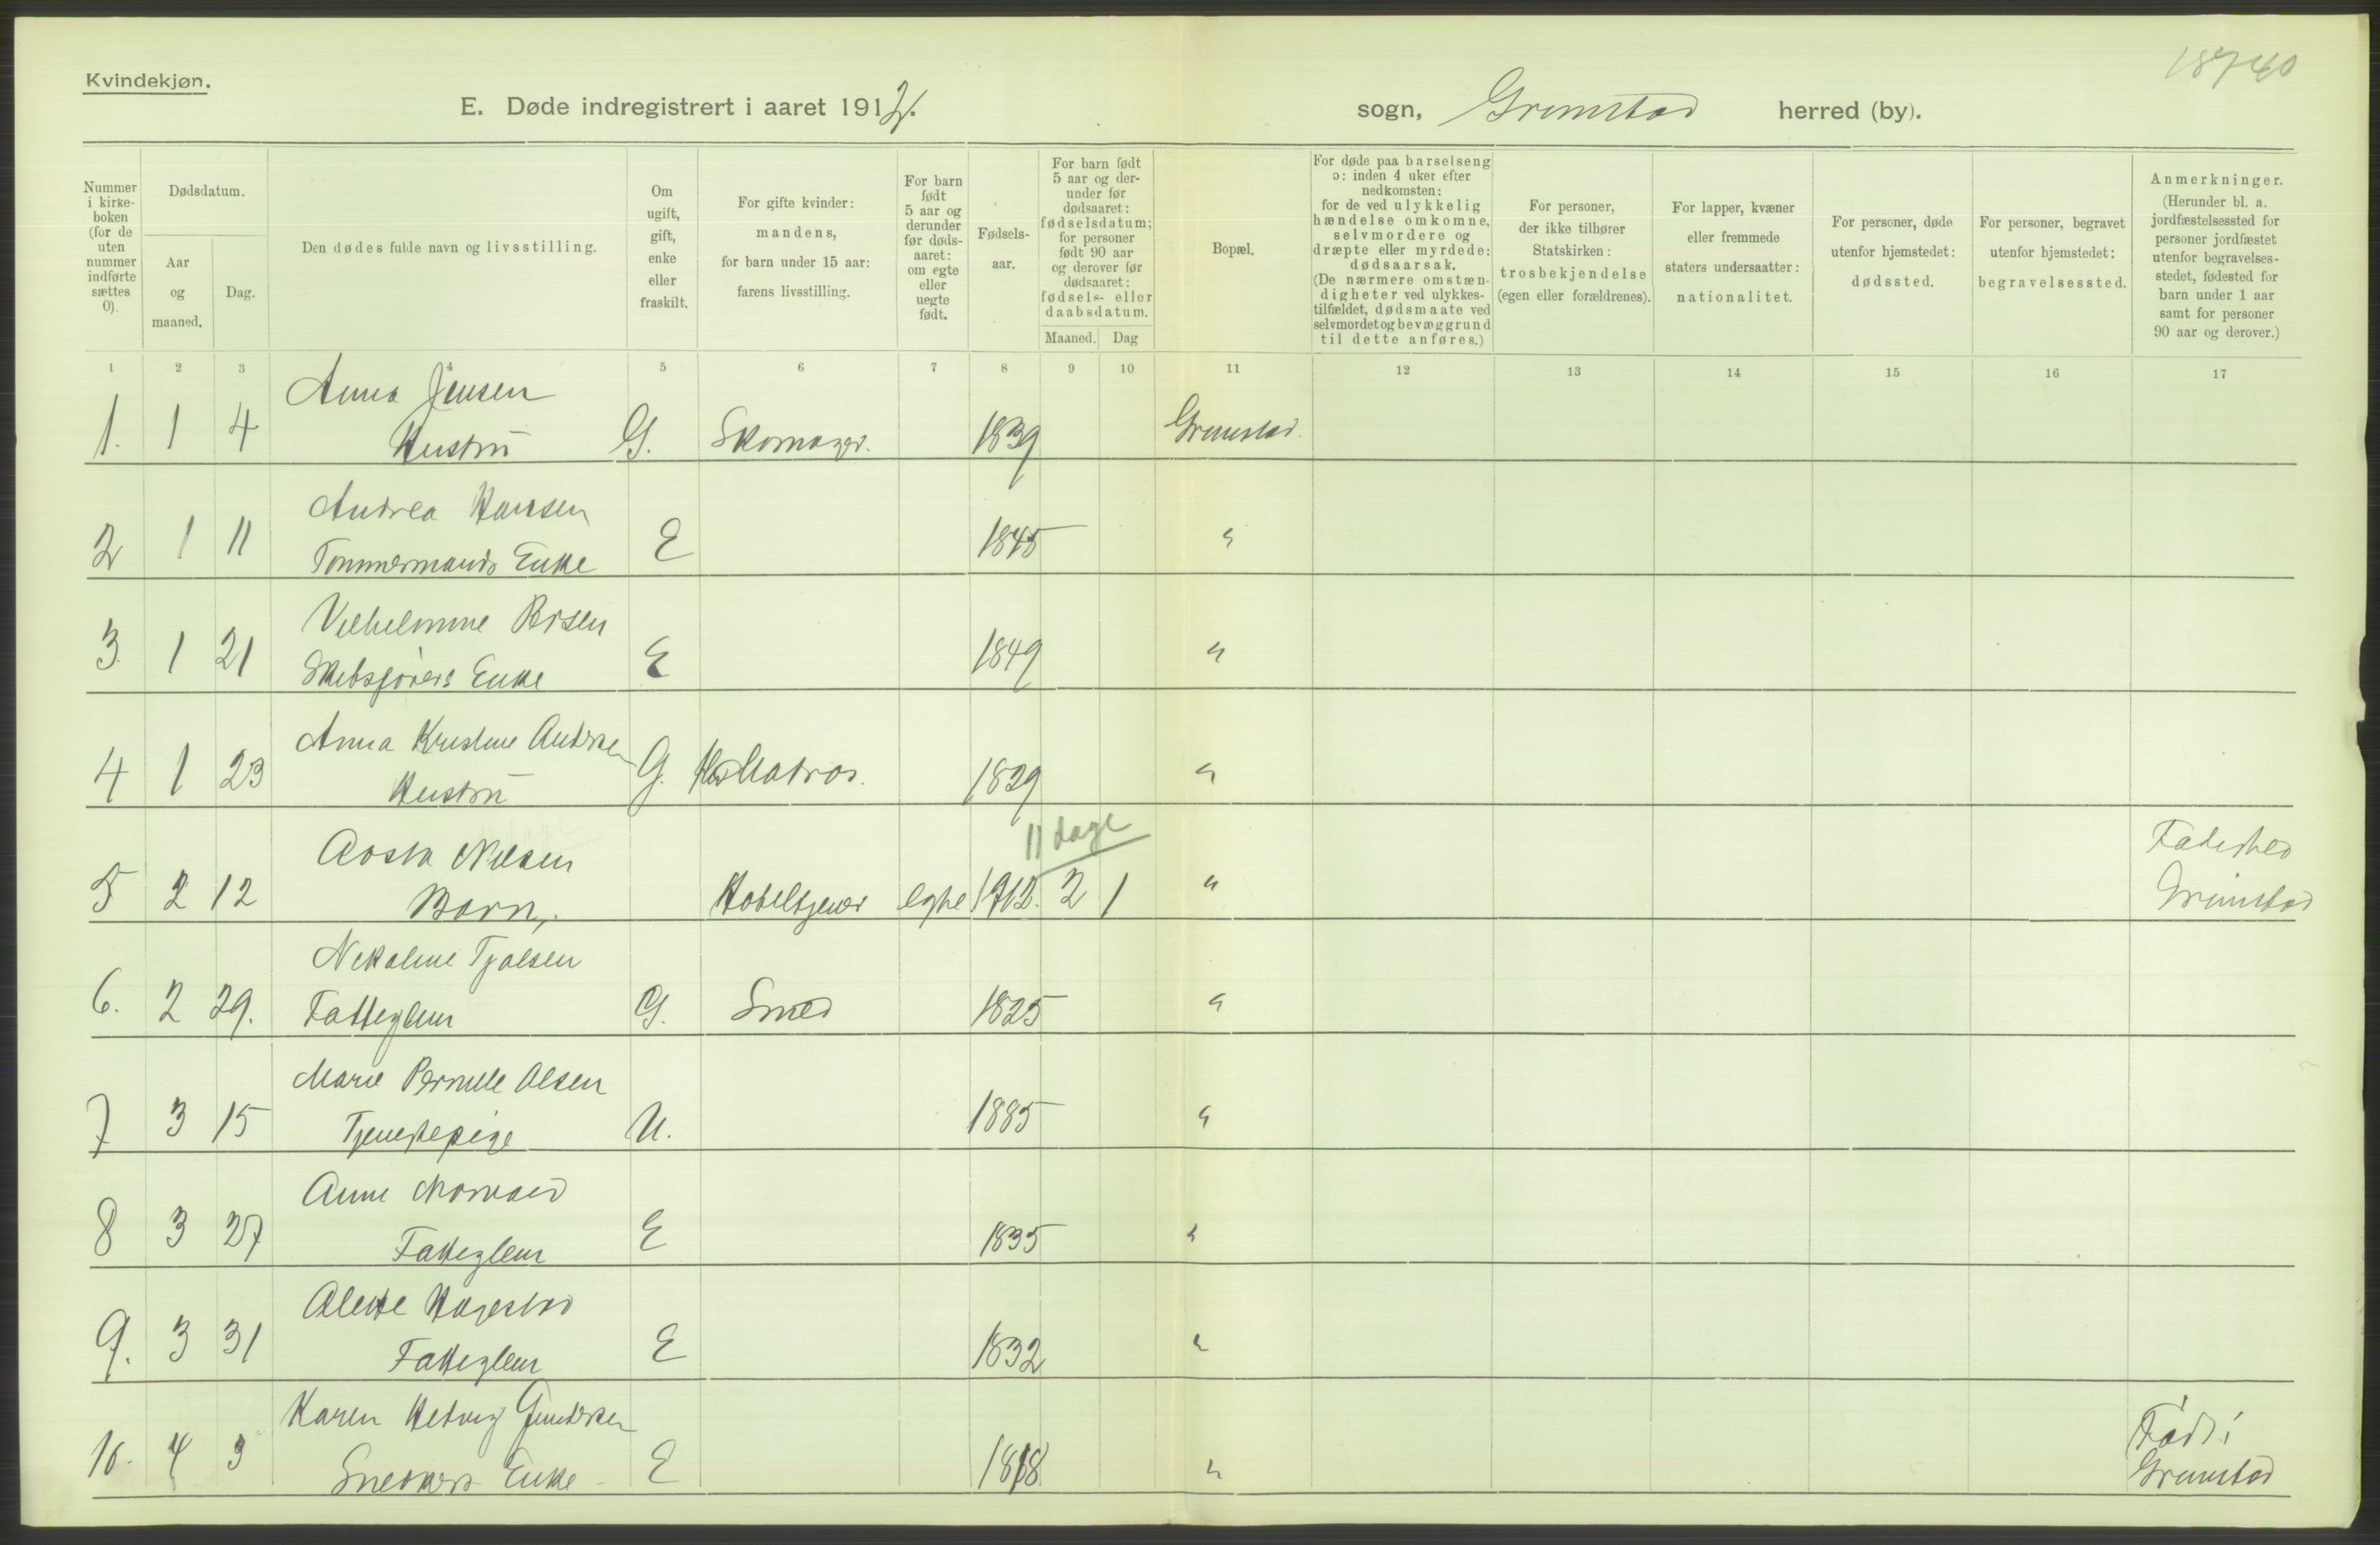 Kvindekjøn.
18740
E. Døde indregistrert i aaret 1912.
sogn, Grimstad herred (by).
Nummer i kirke-boken (for de uten nummer indførte sættes 0).
Dødsdatum.
Aar og maaned.
Dag.
Den dødes fulde navn og livsstilling.
Om ugift, gift, enke eller fraskilt.
For gifte kvinder: mandens, for barn under 15 aar: farens livsstilling.
For barn født 5 aar og derunder før døds-aaret: om egte eller uegte født.
Fødsels-aar.
For barn født 5 aar og der-under før dødsaaret: fødselsdatum; for personer født 90 aar og derover før dødsaaret: fødsels- eller daabsdatum.
Maaned. Dag
Bopæl.
For døde paa barselseng ɔ: inden 4 uker efter nedkomsten: for de ved ulykkelig hændelse omkomne, selvmordere og dræpte eller myrdede: dødsaarsak. (De nærmere omstæn-digheter ved ulykkes-tilfældet, dødsmaate ved selvmordet og bevæggrund til dette anføres.)
For personer, der ikke tilhører Statskirken: trosbekjendelse (egen eller forældrenes).
For lapper, kvæner eller fremmede staters undersaatter: nationalitet.
For personer, døde utenfor hjemstedet: dødssted.
For personer, begravet utenfor hjemstedet: begravelsessted.
Anmerkninger. (Herunder bl. a. jordfæstelsessted for personer jordfæstet utenfor begravelses-stedet, fødested for barn under 1 aar samt for personer 90 aar og derover.)
1 2 3 4 5 6 7 8 9 10 11 12 13 14 15 16 17
Anna Jensen
1. 1 4 Hustru G. Skomager. 1839 Grimstad.
Andrea Hansen
2 1 11 Tømmermands Enke E 1845 "
Vilhelmine
3. 1 21 Skibsførers Enke E 1849 "
Anna Kristine Andersen
4 1 23 Hustru G. Matros. 1829 "
11 dage
Aosta Nilsen Fødested
5 2 12 Barn, Hoteltjener egte 1912. 2 1 " Grimstad
Nikoline Tjølsen
6. 2 29. Fattiglem G. Smed 1825 "
Marie Pernille Olsen
7 3 15 Tjenestepige U. 1885 "
Anne Morvald
8 3 27 Fattiglem E 1835 "
Alette Hagestad
9. 3 31 Fattiglem E 1832 "
Karen Hedvig Gundersen Født i
10. 4 3 Snedkers Enke E 1818 " Grimstad